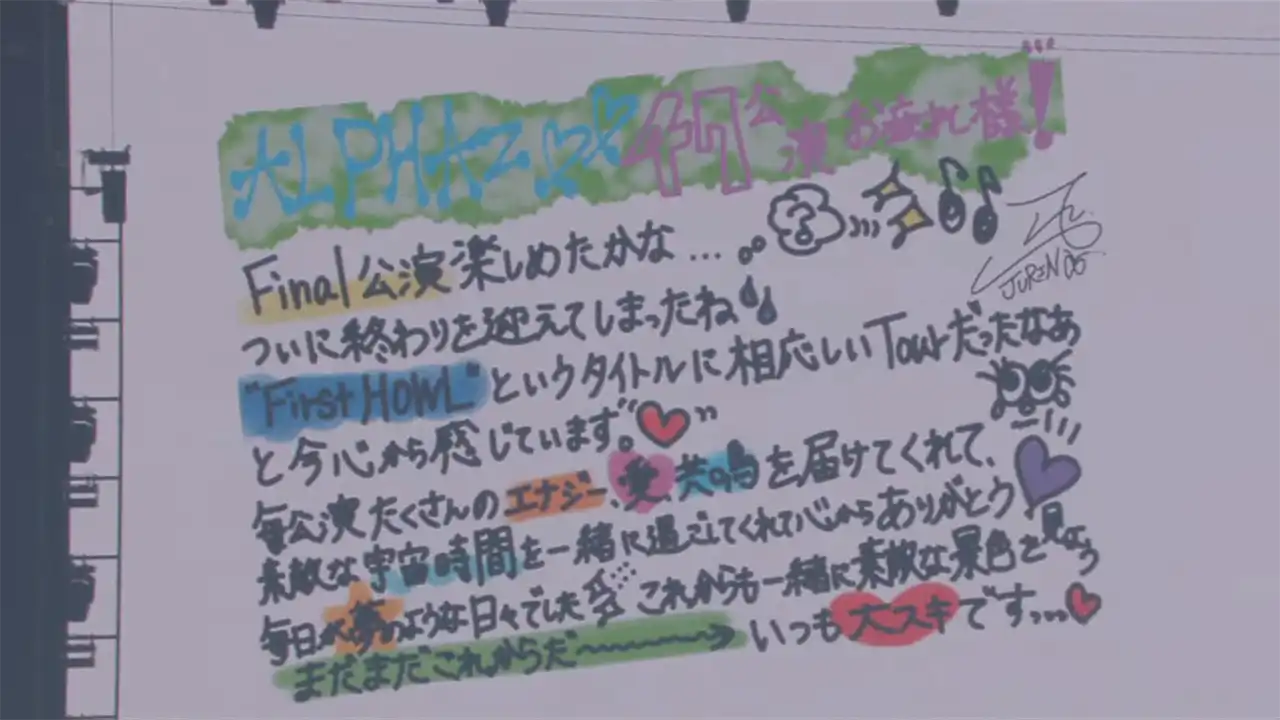 ALPHAZ 公演 お疲れ様!
Final 公演 楽しめたかな...
JURIN 05
ついに終わりを迎えてしまったね
"First HOWL" というタイトルに相応しい Tour だったなあ
と今心から感じています。
毎公演たくさんのエナジー、愛、共鳴を届けてくれて、
素敵な宇宙時間を一緒に過ごしてくれて心からありがとう
毎日が夢のような日々でした これからも一緒に素敵な景色を見よう
まだまだこれからだ いつも大スキです...